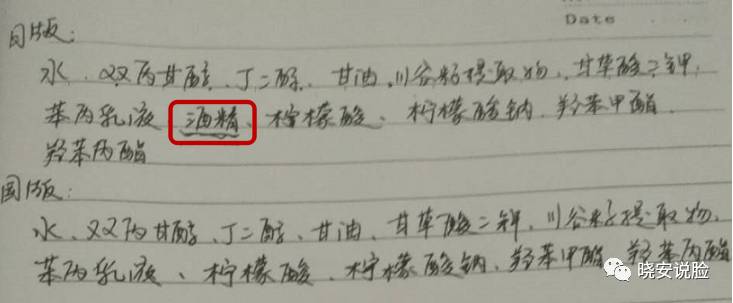 Date
日版:
水、双丙甘醇、丁二醇、甘油、川谷籽提取物、甘草酸二钾、
苯丙乳液 酒精、柠檬酸、柠檬酸钠、羟苯甲酯
羟苯丙酯
国版:
水、双丙甘醇、丁二醇、甘油、甘草酸二钾、川谷籽提取物、
苯丙乳液、柠檬酸、柠檬酸钠、羟苯甲酯、羟苯丙酯
晓安说脸